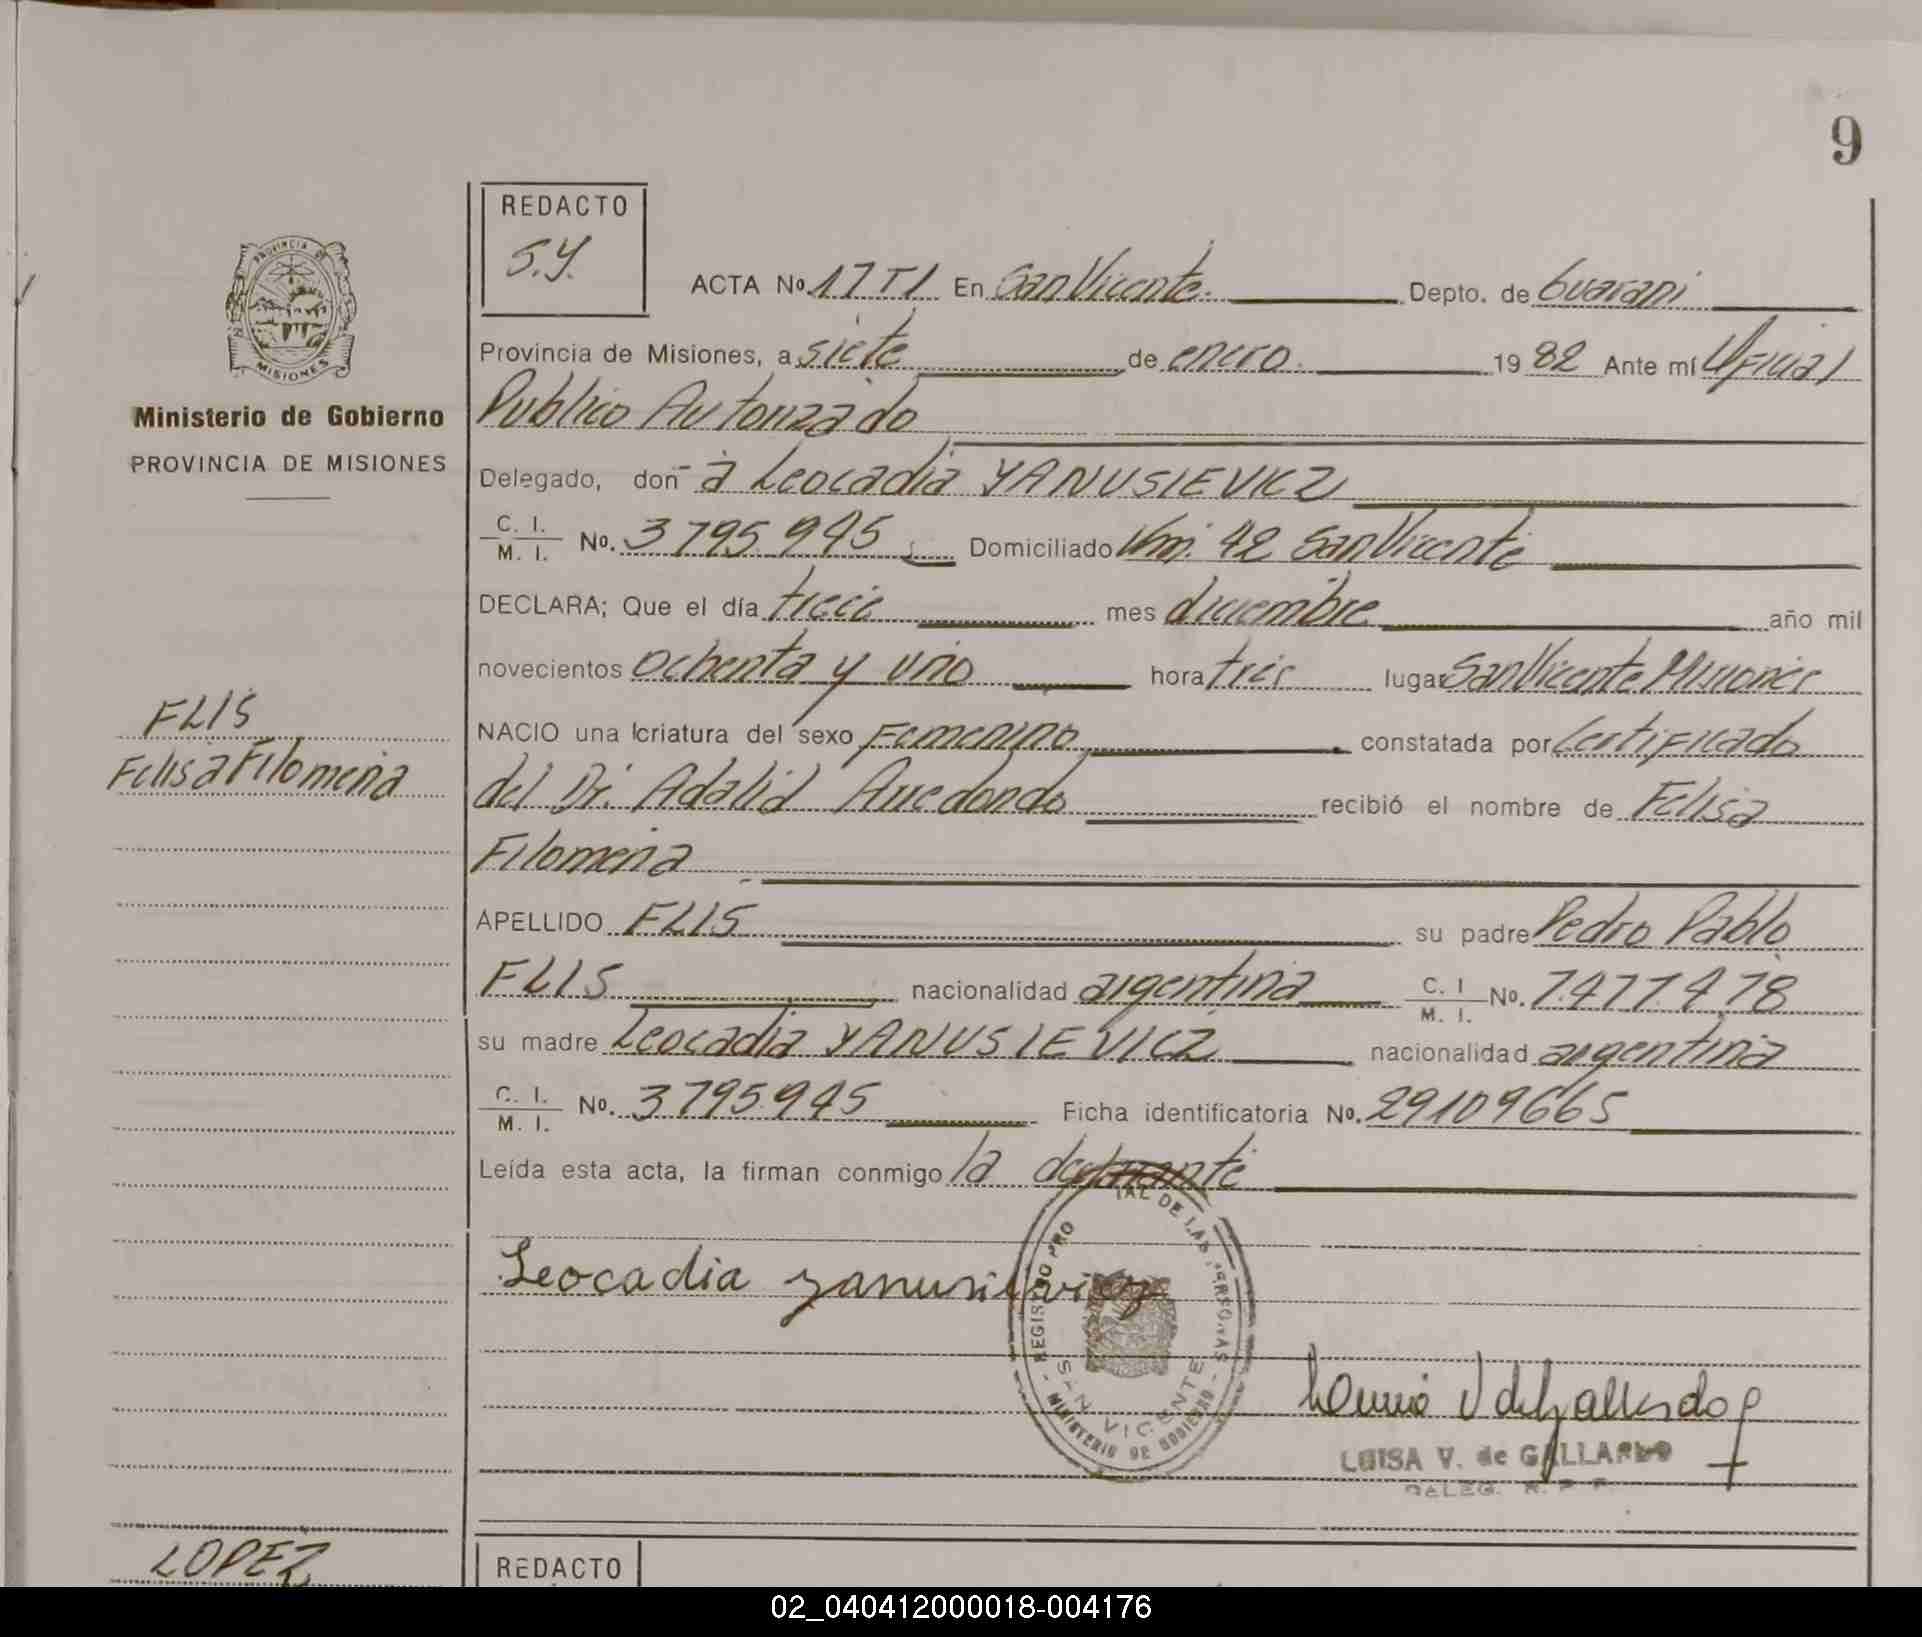 9
REDACTO
S.Y.
PROVINCIA DE
MISIONES
Ministerio de Gobierno
PROVINCIA DE MISIONES
ACTA No. 17 T I En San Vicente. Depto. de Guarani
Provincia de Misiones, a siete de enero. 1982 Ante mí Oficial
Publico Autorizado
Delegado, don - a Leocadia YANUSIEVICZ
C. I.
M. I. No. 3795.945 Domiciliado Km. 42 San Vicente
DECLARA; Que el día trece mes diciembre año mil
novecientos ochenta y uno hora tres lugar San Vicente Misiones
FLIS
Felisa Filomena
NACIO una criatura del sexo Femenino constatada por Certificado
del Dr. Adalid Arredondo recibió el nombre de Felisa
Filomena
APELLIDO FLIS su padre Pedro Pablo
FLIS nacionalidad argentina C. I
M. I. No. 7.477.478
su madre Leocadia YANUSIEVICZ nacionalidad argentina
C. I.
M. I. No. 3795.945 Ficha identificatoria No. 29109665
Leída esta acta, la firman conmigo la declarante
Leocadia yanusievicz
REGISTRO PRO IAL DE LAS PERSONAS
SAN VICENTE
MINISTERIO DE GOBIERNO
LUISA V. de GALLARDO
DELEG. R. P. P.
LOPEZ
REDACTO
02_040412000018-004176